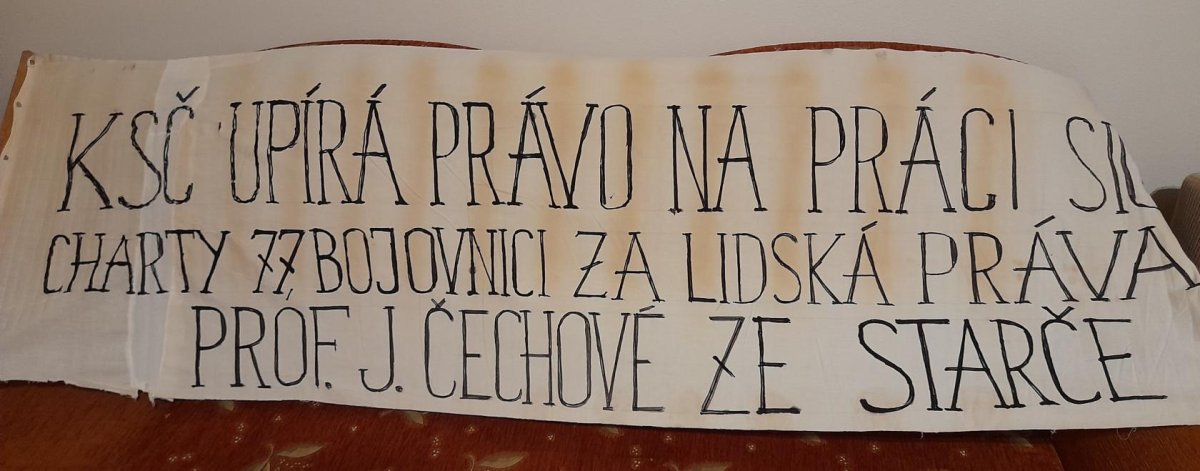 KSČ UPÍRÁ PRÁVO NA PRÁCI
CHARTY 77, BOJOVNICI ZA LIDSKÁ PRÁVA
PROF. J. ČECHOVÉ ZE STARČE